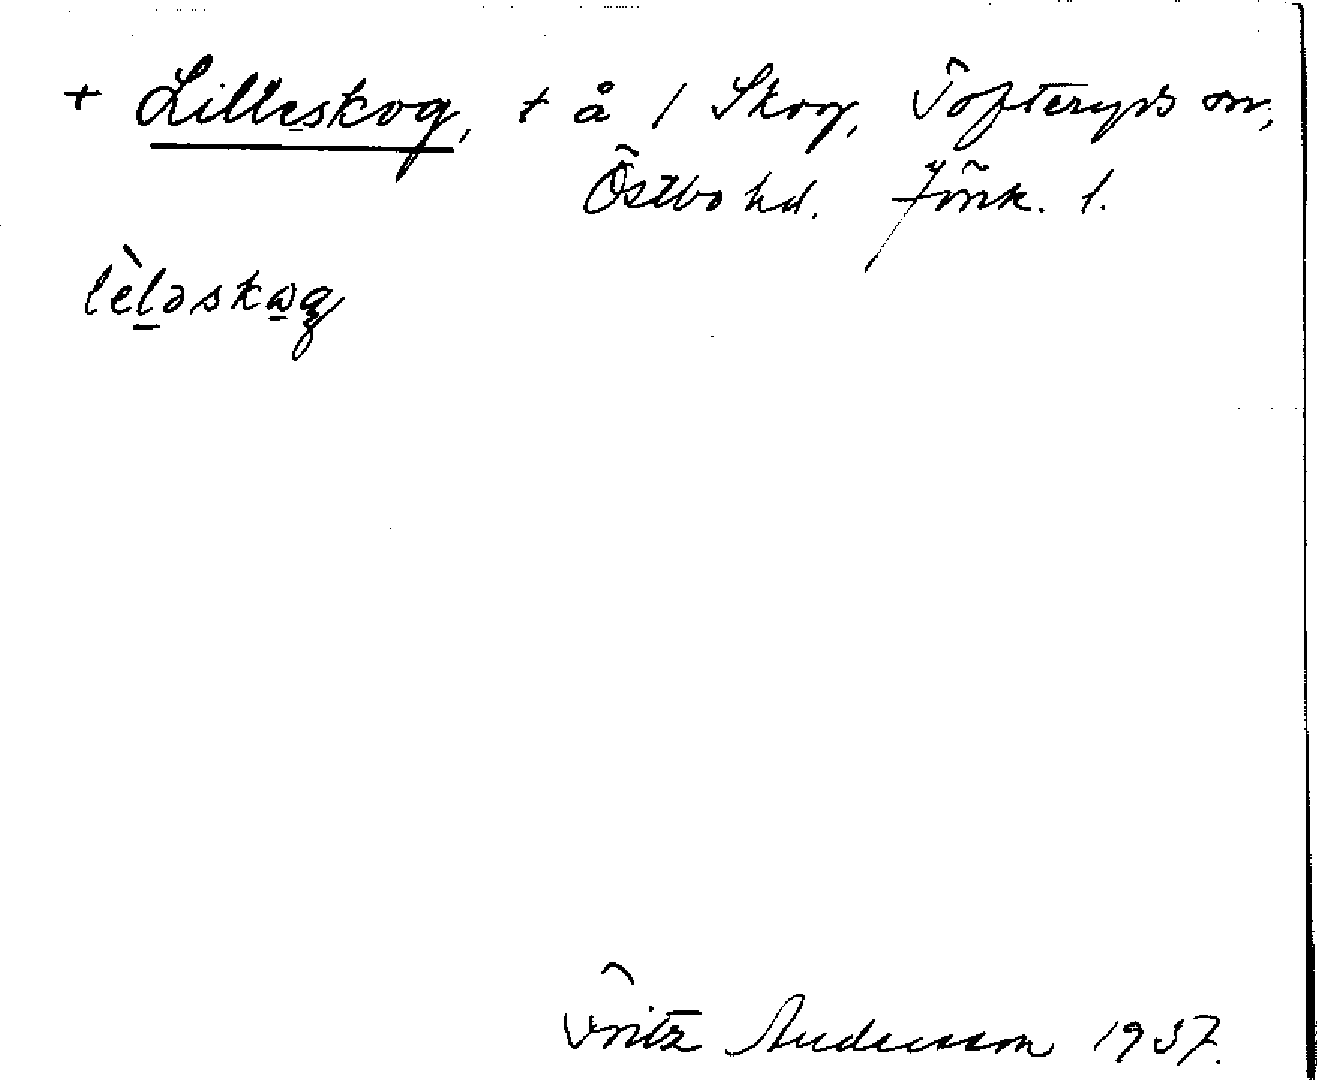 + Lilleskog, + å 1 Skog, Tofteryds sn,
Östbo hd. Jönk. l.
lèləskɷg
Fritz Andersson 1937.